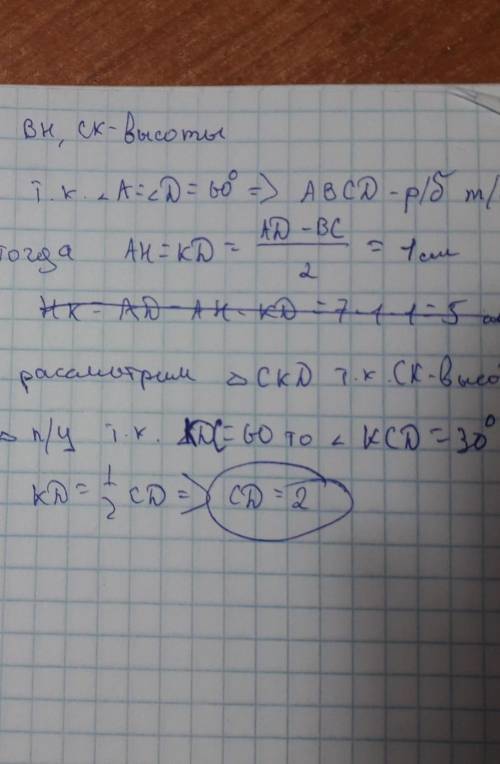 BH, CK - высоты
т.к. ∠A = ∠D = 60° => ABCD - р/б т/
тогда AH = KD = (AD - BC)/2 = 1 см
HK - AD - AH - KD = 7 - 1 - 1 = 5 см
рассмотрим △ CKD т.к. CK - высо
△ п/у т.к. KDC = 60 то ∠ KCD = 30°
KD = 1/2 CD => CD = 2